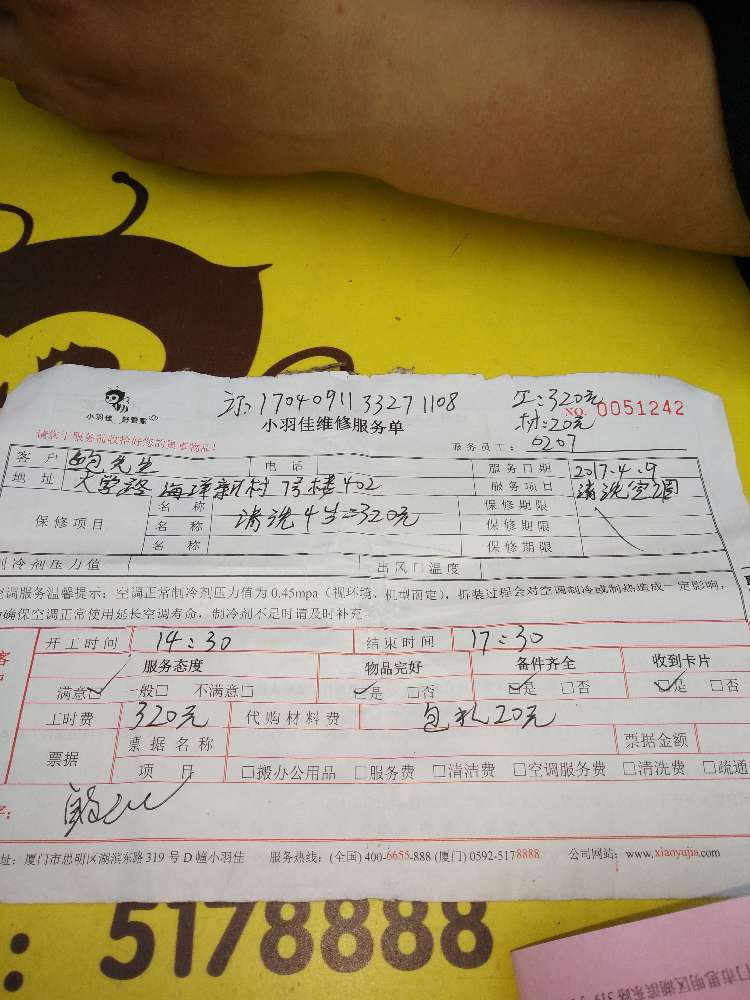 170409113327 1108
工:320元
材:20元
小羽佳 好管家
小羽佳维修服务单
NO. 0051242
请您于服务前收拾好您的贵重物品!
服务员工: 0207
客户 鲍先生 电话 服务日期 2017.4.9
地址 大学路 海洋新村 7号楼402 服务项目 清洗空调
保修项目 名称 清洗4台=320元 保修期限
名称 保修期限
名称 保修期限
制冷剂压力值 出风口温度
空调服务温馨提示:空调正常制冷剂压力值为 0.45mpa(视环境、机型而定),拆装过程会对空调制冷或制热造成一定影响,
为确保空调正常使用延长空调寿命,制冷剂不足时请及时补充。
开工时间 14:30 结束时间 17:30
服务态度 物品完好 备件齐全 收到卡片
满意☑ 一般□ 不满意□ ☑是 □否 ☑是 □否 ☑是 □否
工时费 320元 代购材料费 包扎20元
票据 票据名称 票据金额
项目 □搬办公用品 □服务费 □清洁费 □空调服务费 □清洗费 □疏通
址:厦门市思明区湖滨东路 319 号 D 幢小羽佳 服务热线:(全国) 400-6655-888 (厦门) 0592-5178888 公司网站:www.xiaoyujia.com
: 5178888